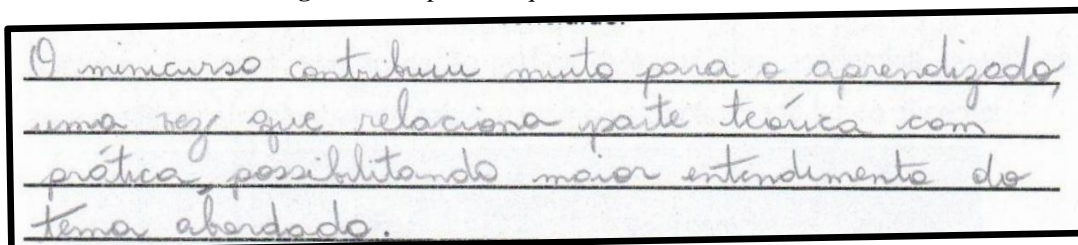 O minicurso contribuiu muito para o aprendizado,
uma vez que relaciona parte teórica com
prática, possibilitando maior entendimento do
tema abordado.